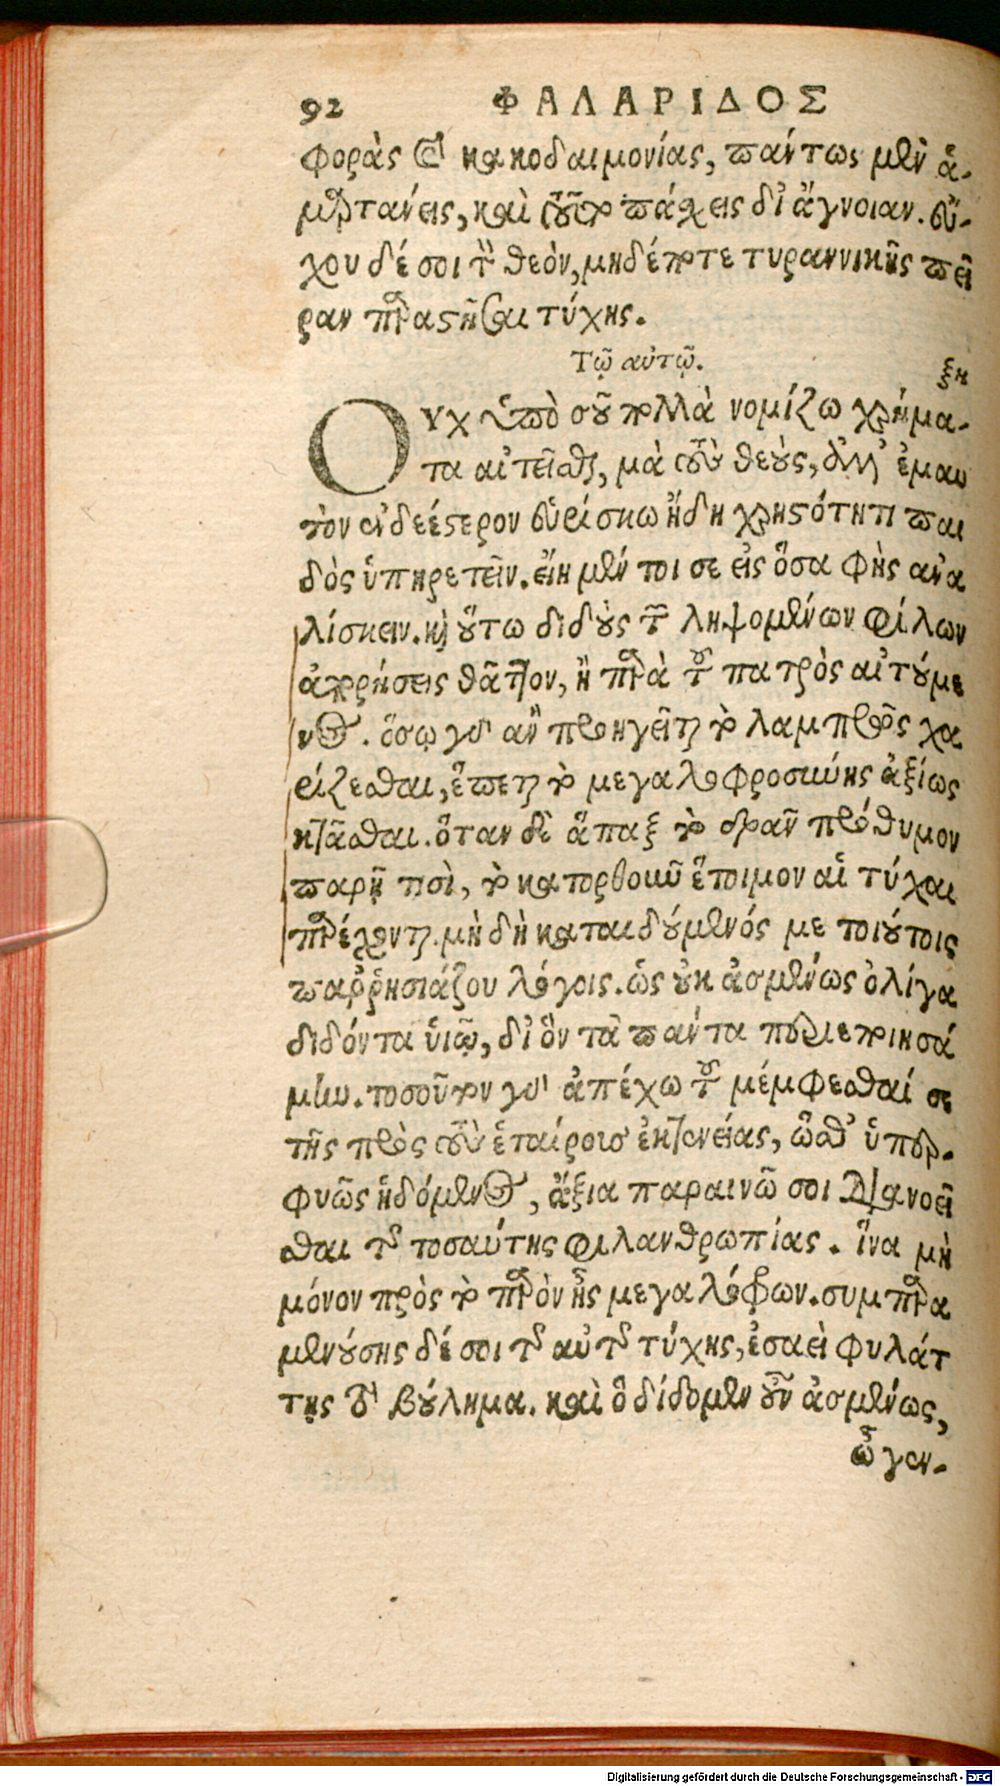 92 ΦΑΛΑΡΙΔΟΣ
φορὰς καὶ κακοδαιμονίας, πάντως μὲν ἁ-
μαρτάνεις, καὶ τοῦτο πάσχεις δι᾽ ἄγνοιαν. εὔ-
χου δέ σοι τὸν θεὸν, μηδέποτε τυραννικῆς πεῖ
ραν παραστῆσαι τύχης.
Τῷ αὐτῷ. ξη
ΟΥΧ ὑπὸ σοῦ πολλὰ νομίζω χρήμα-
τα αἰτεῖσθαι, μὰ τοὺς θεοὺς, ἀλλ᾽ ἐμαυ
τὸν ἐνδεέστερον εὑρίσκω ἤδη χρηστότητι παι
δὸς ὑπηρετεῖν. εἴη μέν τοι σε εἰς ὅσα φῂς ἀνα
λίσκειν. καὶ οὕτω διδοὺς τῶν ληψομένων φίλων
ἀχρήσεις θᾶττον, ἢ παρὰ τοῦ πατρὸς αἰτούμε
νος. ὅσῳ γὰρ ἂν προηγεῖται τὸ λαμπρῶς χα
ρίζεσθαι, ἕπεται τὸ μεγαλοφροσύνης ἀξίως
κτᾶσθαι. ὅταν δὲ ἅπαξ τὸ δρᾶν πρόθυμον
παρῇ τισὶ, τὸ κατορθοῦν ἕτοιμον αἱ τύχαι
παρέχονται. μὴ δὴ καταιδούμενός με τοιούτοις
παῤῥησιάζου λόγοις. ὡς οὐκ ἀσμένως ὀλίγα
διδόντα υἱῷ, δι᾽ ὃν τὰ πάντα περιεποιησά
μην. τοσοῦτον γὰρ ἀπέχω τοῦ μέμφεσθαί σε
τῆς πρὸς τοὺς ἑταίρους ἐκτενείας, ὥσθ᾽ ὑπερ-
φυῶς ἡδόμενος, ἄξια παραινῶ σοι διανοεῖ
σθαι τῆς τοσαύτης φιλανθρωπίας. ἵνα μὴ
μόνον πρὸς τὸ παρὸν ᾖς μεγαλόφρων. συμπαρα
μενούσης δέ σοι τῆς αὐτῆς τύχης, ἐσαεὶ φυλάτ
της τὸ βούλημα. καὶ ὃ δίδομεν οὖν ἀσμένως,
ὦ γεν-
Digitalisierung gefördert durch die Deutsche Forschungsgemeinschaft - DFG